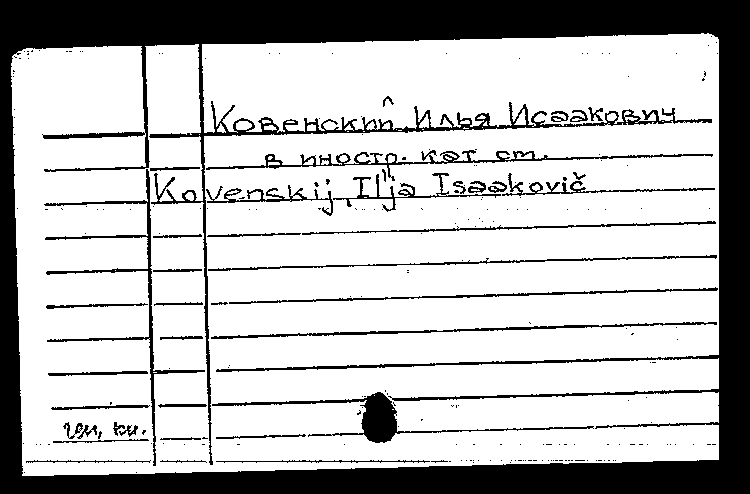 Ковенский, Илья Исаакович
в иностр. кат см.
Kovenskij, Il'ja Isaakovič